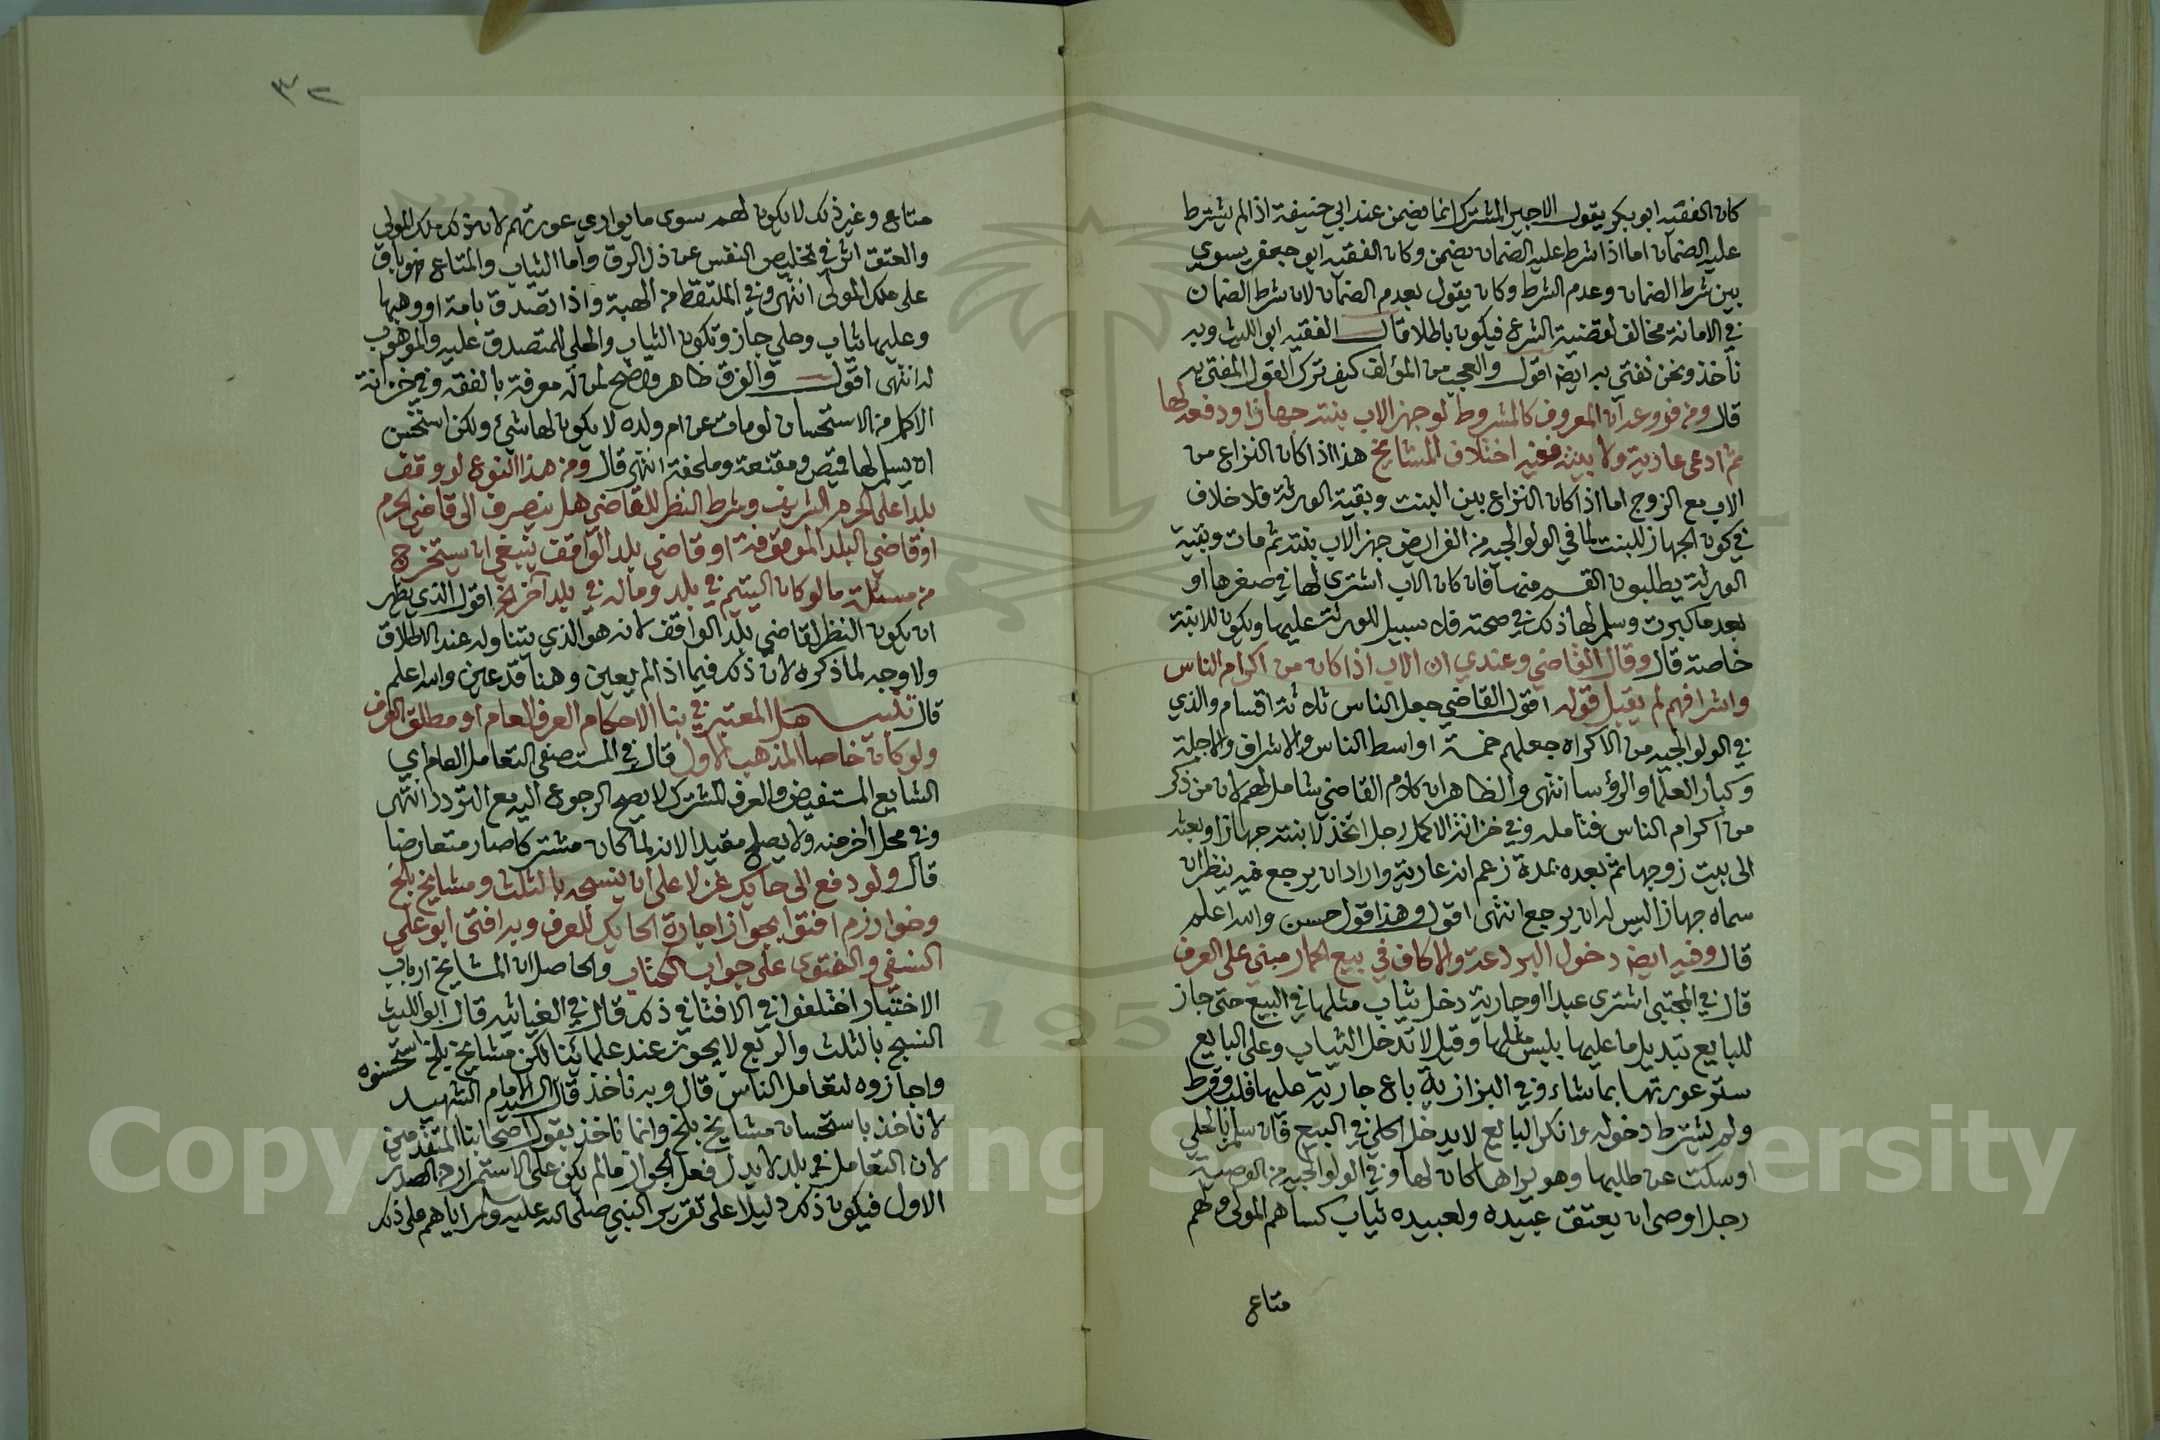 كان الفقيه ابو بكر يقول الاجير المشترك انما يضمن عند ابي حنيفة اذا لم يشترط
عليه الضمان اما اذا شرط عليه الضمان يضمن وكان الفقيه ابو جعفر يسوي
بين شرط الضمان وعدم الشرط وكان يقول بعدم الضمان لان شرط الضمان
في الامانة مخالف لقضية الشرع فيكون باطلا قال الفقيه ابو الليث وبه
نأخذ ونحن نفتي به ايضا اقول والعجب من المؤلف كيف ترك القول المفتى به
قال ومن فروعه ان المعروف كالمشروط لو جهز الاب بنته جهازا ودفعه لها
ثم ادعى عارية ولا بينة ففيه اختلاف المشايخ هذا اذا كان النزاع من
الاب مع الزوج اما اذا كان النزاع بين البنت وبقية الورثة فلا خلاف
في كون الجهاز للبنت لما في الولوالجيه من الفرايض جهز الاب بنته ثم مات وبقية
الورثة يطلبون القسم منها فان كان الاب اشترى لها في صغرها او
بعد ما كبرت وسلم لها ذلك في صحته فلا سبيل للورثة عليها ويكون للابنة
خاصة قال وقال القاضي وعندي ان الاب اذا كان من اكرام الناس
واشرافهم لم يقبل قوله اقول القاضي جعل الناس ثلاثة اقسام والذي
في الولوالجيه من الاكراه جعلهم خمسة اواسط الناس والاشراف والاجلة
وكبار العلما والرؤسا انتهى والظاهر ان كلام القاضي شامل لهم لان من ذكر
من اكرام الناس فتامله وفي خزانة الاكمل رجل اتخذ لابنته جهازا وبعثه
الى بيت زوجها ثم بعده بمدة زعم انه عارية واراد ان يرجع فيه ينظر ان
سماه جهازا ليس له ان يرجع انتهى اقول وهذا قول حسن والله اعلم
قال وفيه ايضا دخول البردعة والاكاف في بيع الحمار مبني على العرف
قال في المجتبى اشترى عبدا او جارية دخل ثياب مثلها في البيع حتى جاز
للبايع تبديل ما عليها بلبس مثلها وقيل لا تدخل الثياب وعلى البايع
ستر عورتها بما شاء وفي البزازية باع جارية عليها قلب وقرط
ولم يشترط دخوله وانكر البايع لا يدخل الحلي في البيع فان سلم البايع الحلي
او سكت عن طلبها وهو يراها كان لها وفي الولوالجيه من الوصية
رجل اوصى ان يعتق عبيده ولعبيده ثياب كساهم المولى ولهم
متاع
٣٢
متاع وغير ذلك لا يكون لهم سوى ما يواري عورتهم لان ذلك ملك المولى
والعتق اثر في تخليص النفس عن ذل الرق واما الثياب والمتاع فهو باق
على ملك المولى انتهى وفي الملتقط من الهبة واذا تصدق بامة او وهبها
وعليها ثياب وحلي جاز وتكون الثياب والحلي للمتصدق عليه والموهوب
له انتهى اقول والفرق ظاهر واضح لمن له معرفة بالفقه وفي خزانة
الاكمل من الاستحسان لو مات عن ام ولده لا يكون لها شيء ولكن استحسن
ان يسلم لها قميص ومقنعة وملحفة انتهى قال ومن هذا النوع لو وقف
بلدا على الحرم الشريف وشرط النظر للقاضي هل ينصرف الى قاضي الحرم
او قاضي البلد الموقوفة او قاضي بلد الواقف ينبغي ان يستخرج
من مسئلة ما لو كان اليتيم في بلد وماله في بلد آخر الخ اقول الذي يظهر
ان يكون النظر لقاضي بلد الواقف لانه هو الذي يتناوله عند الاطلاق
ولا وجه لما ذكره لان ذلك فيما اذا لم يعين وهنا قد عين والله اعلم
قال تنبيه هل المعتبر في بنا الاحكام العرف العام او مطلق العرف
ولو كان خاصا المذهب الاول قال في المستصفى التعامل العام اي
الشايع المستفيض والعرف المشترك لا يصح الرجوع اليه مع التردد انتهى
وفي محل اخر منه ولا يصلح مقيدا لانه لما كان مشتركا صار متعارضا
قال ولو دفع الى حايك غزلا على ان ينسجه بالثلث ومشايخ بلخ
وخوارزم افتوا بجواز اجارة الحايك للعرف وبه افتى ابو علي
النسفي والفتوى على جواب الكتاب والحاصل ان المشايخ ارباب
الاختيار اختلفوا في الافتا في ذلك قال في الغياثيه قال ابو الليث
النسج بالثلث والربع لا يجوز عند علمائنا لكن مشايخ بلخ استحسنوه
واجازوه لتعامل الناس قال وبه ناخذ قال السيد الامام الشهيد
لا ناخذ باستحسان مشايخ بلخ وانما ناخذ بقول اصحابنا المتقدمين
لان التعامل في بلد لا يدل فعل الجواز مالم يكن على الاستمرار من الصدر
الاول فيكون ذلك دليلا على تقرير النبي صلى الله عليه وسلم اياهم على ذلك